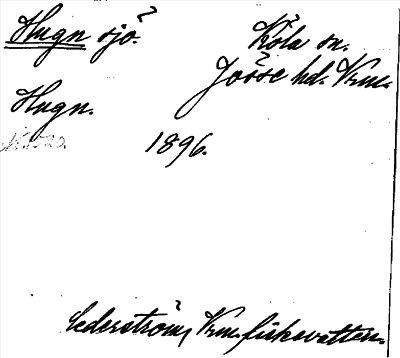 Hugn sjö?
Köla sn.
Jösse hd. Vrm.
Hugn.
1896.
Cederström, Vrm. fiskevatten.